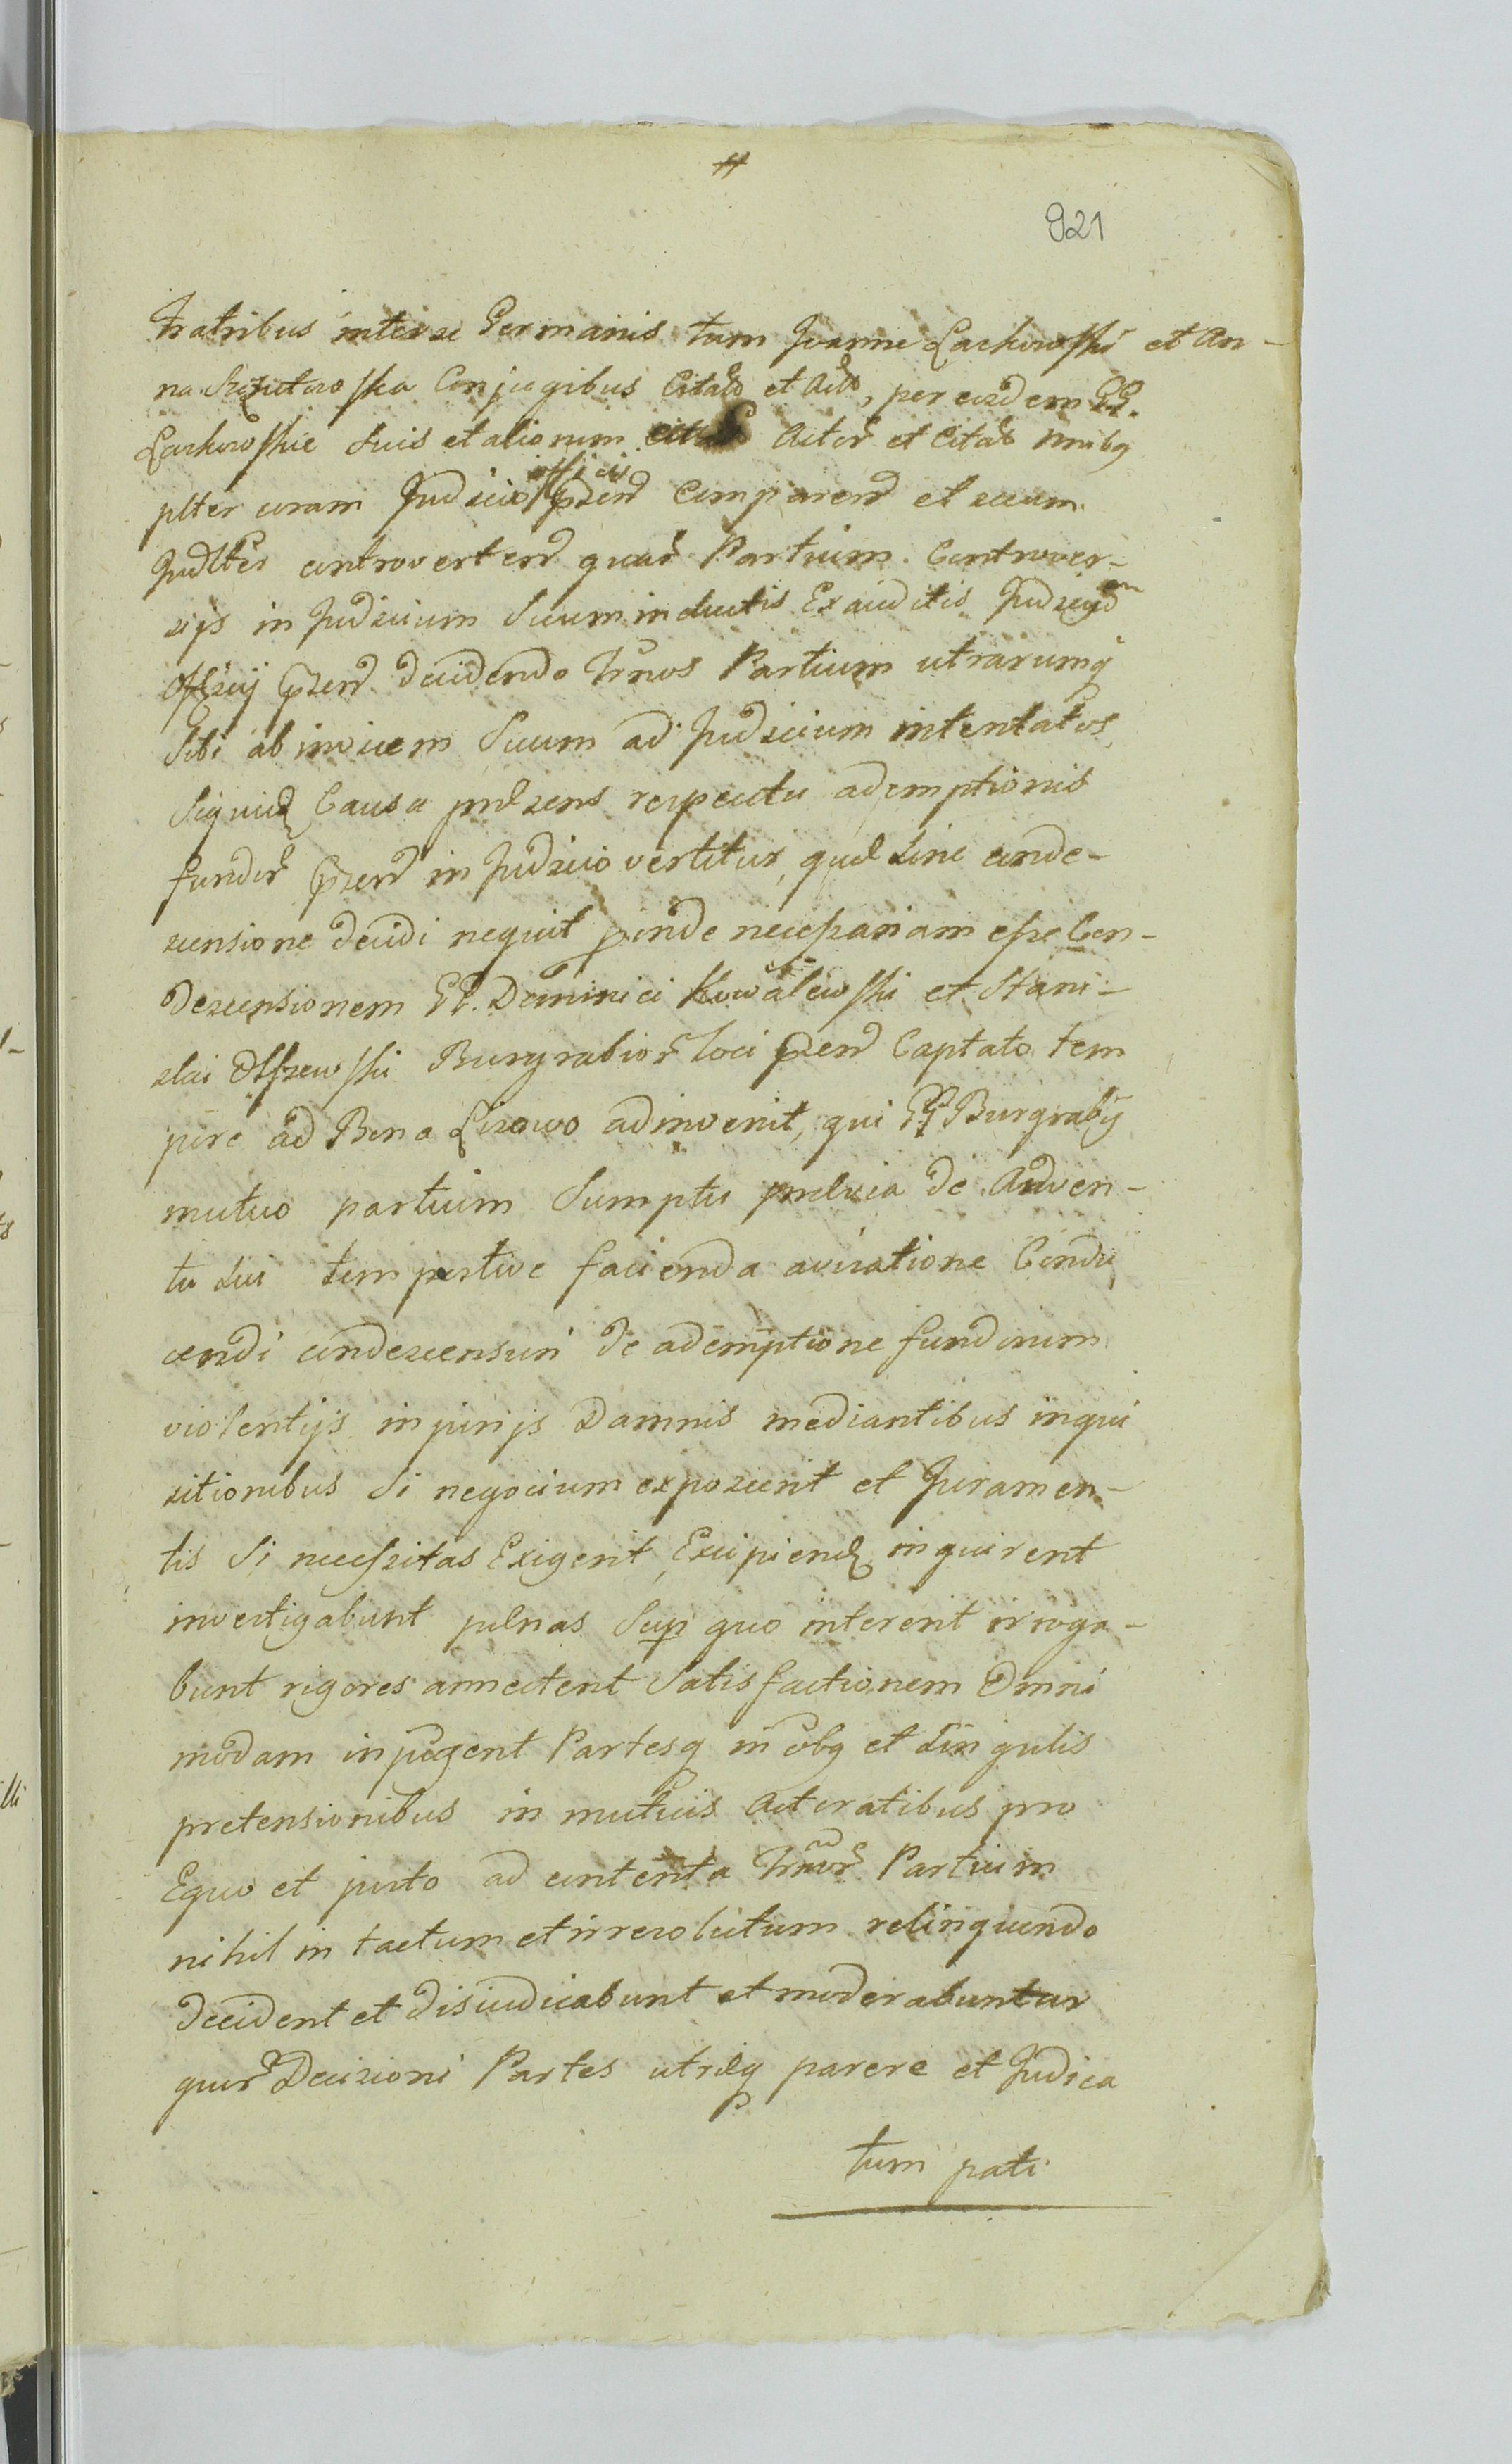 921
Fratribus inter se Germanis tum Joanne Lachowski et An-
na Conjugibus Citatis et Actis, per eosdem GG.
Lachowskie Suis et aliorum Actor et Citat nnibq
plter coram Judicio Officii pzen Comparen et secum
Judlter controverten quar Partium Controver-
sijs in Judicium Suum inductis Exauditis Judicyu
Offcij pzen decidendo Trnos Partium utrarumq
Sibi ab invicem Suum ad Judicium intentatos
Siquid Causa prdsens respectu ademptionis
fundor pzen in Judicio vertitur, qud sine conde-
scensione decidi nequit proinde necessariam esse Con-
descensionem GG. Dominici Kowalewski et Stani-
slai Olszewski Burgrabior loci pzen Captato tem
pore ad Bona Lisowo adinvenit, qui GG Burgrabij
mutuo partium Sumptu prdvia de Adven-
tu sui tempestive facienda avisatione Condu
cendi condescensuri de ademptione fundorum
violentijs injurijs Damnis mediantibus inqui
sitionibus Si negocium exposcerit et Juramen-
tis Si necessitas Exigerit, Excipiend inquirent
investigabunt pdnas Sup quo intererit irroga-
bunt rigores annectent Satisfactionem Omni
modam injugent Partesq in obq et Singulis
pretensionibus in mutuis Actoratibus pro
Equo et justo ad contenta Trnor Partium
nihil in tactum et irresolutum relinquendo
decident et disiudicabunt et moderabuntur
quor Decisioni Partes utrdq parere et Judica
tum pati